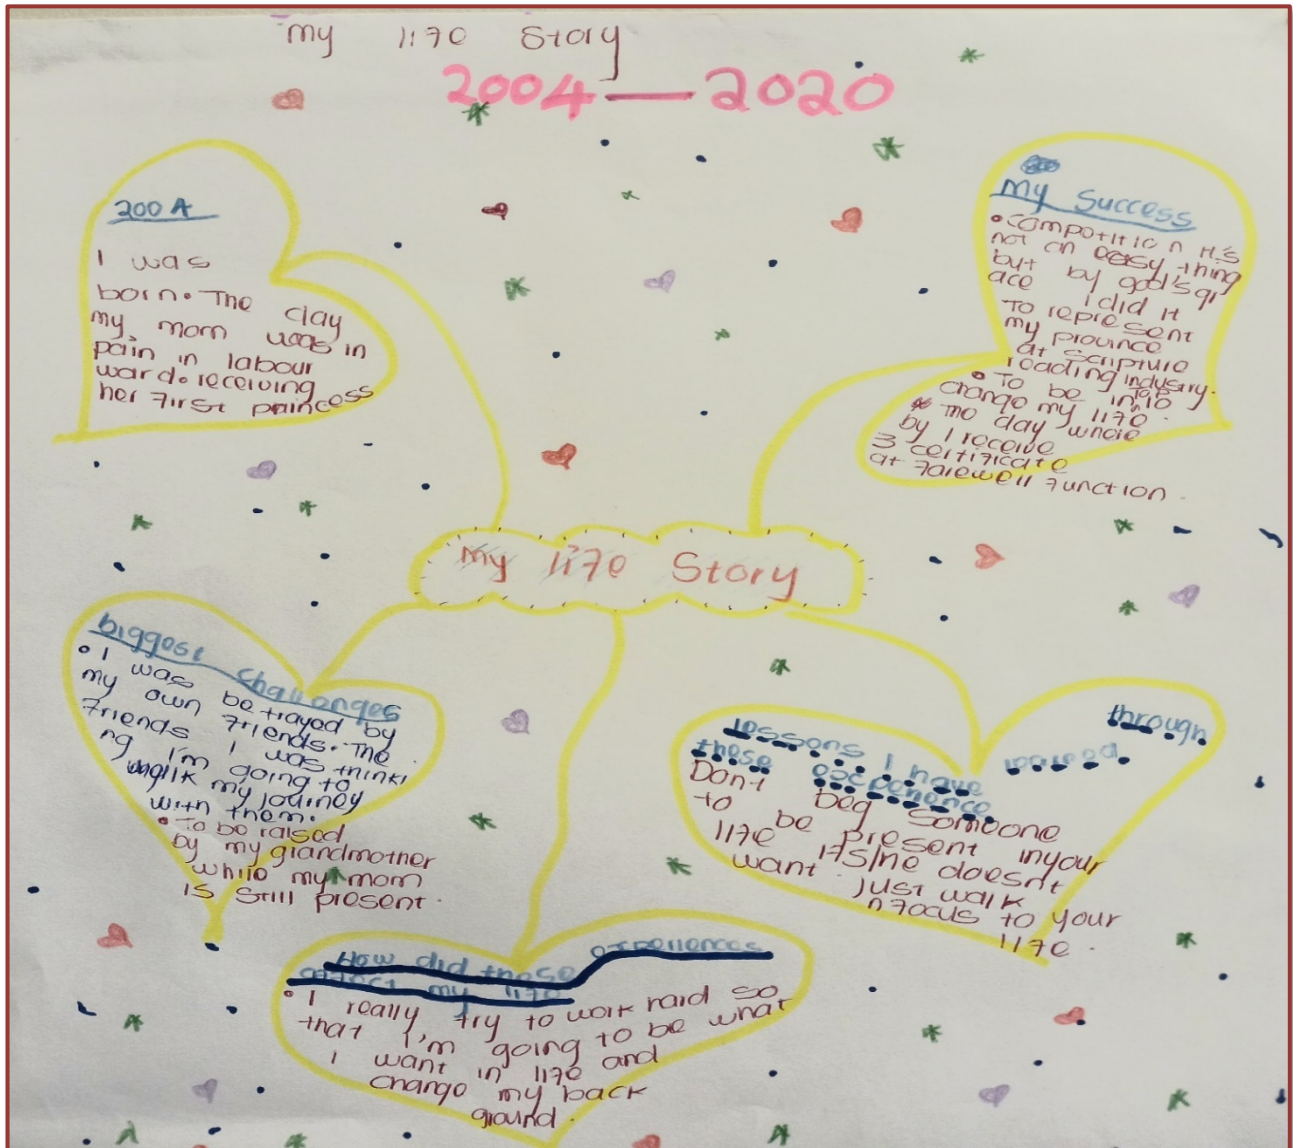 my life Story
2004 — 2020
2004
I was
born. The day
my mom was in
pain in labour
ward. receiving
her first princess
My Success
• Compotition It's
not an easy thing
but by god's gr
ace I did it
To represent
my province
at scripture
reading industry.
• To be in top 10
change my life.
The day where
by I receive
3 certificate
at farewell function.
my life Story
biggest challenges
• I was betrayed by
my own friends. The
friends I was thinki
ng I'm going to
walk my journey
with them.
• To be raised
by my grandmother
while my mom
is still present.
lessons I have learned through
these experience
Dont beg someone
to be present in your
life if s/he doesnt
want. just walk
n focus to your
life.
How did these experiences
affect my life
• I really try to work hard so
that I'm going to be what
I want in life and
change my back
ground.